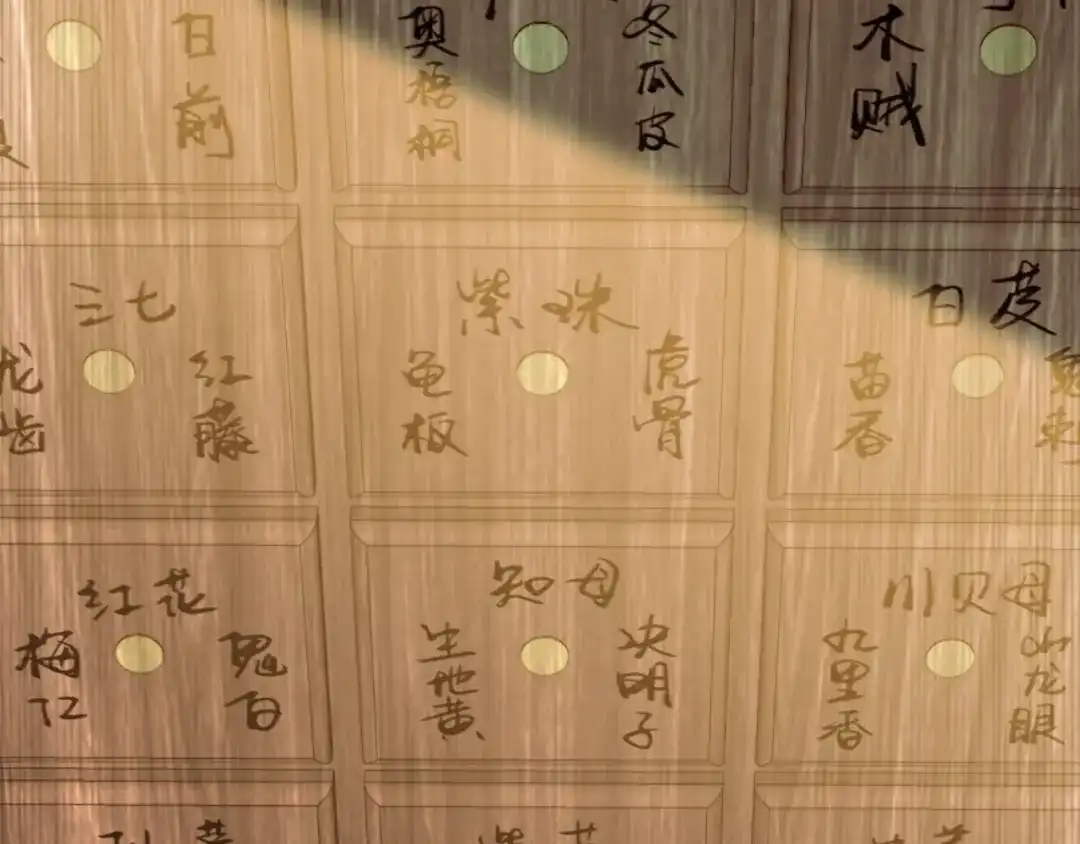 白前
奥梧桐
冬瓜皮
木贼
三七
龙齿
红藤
紫珠
龟板
虎骨
白芨
苗香
红花
梅
知母
生地黄
决明子
川贝母
九里香
龙眼